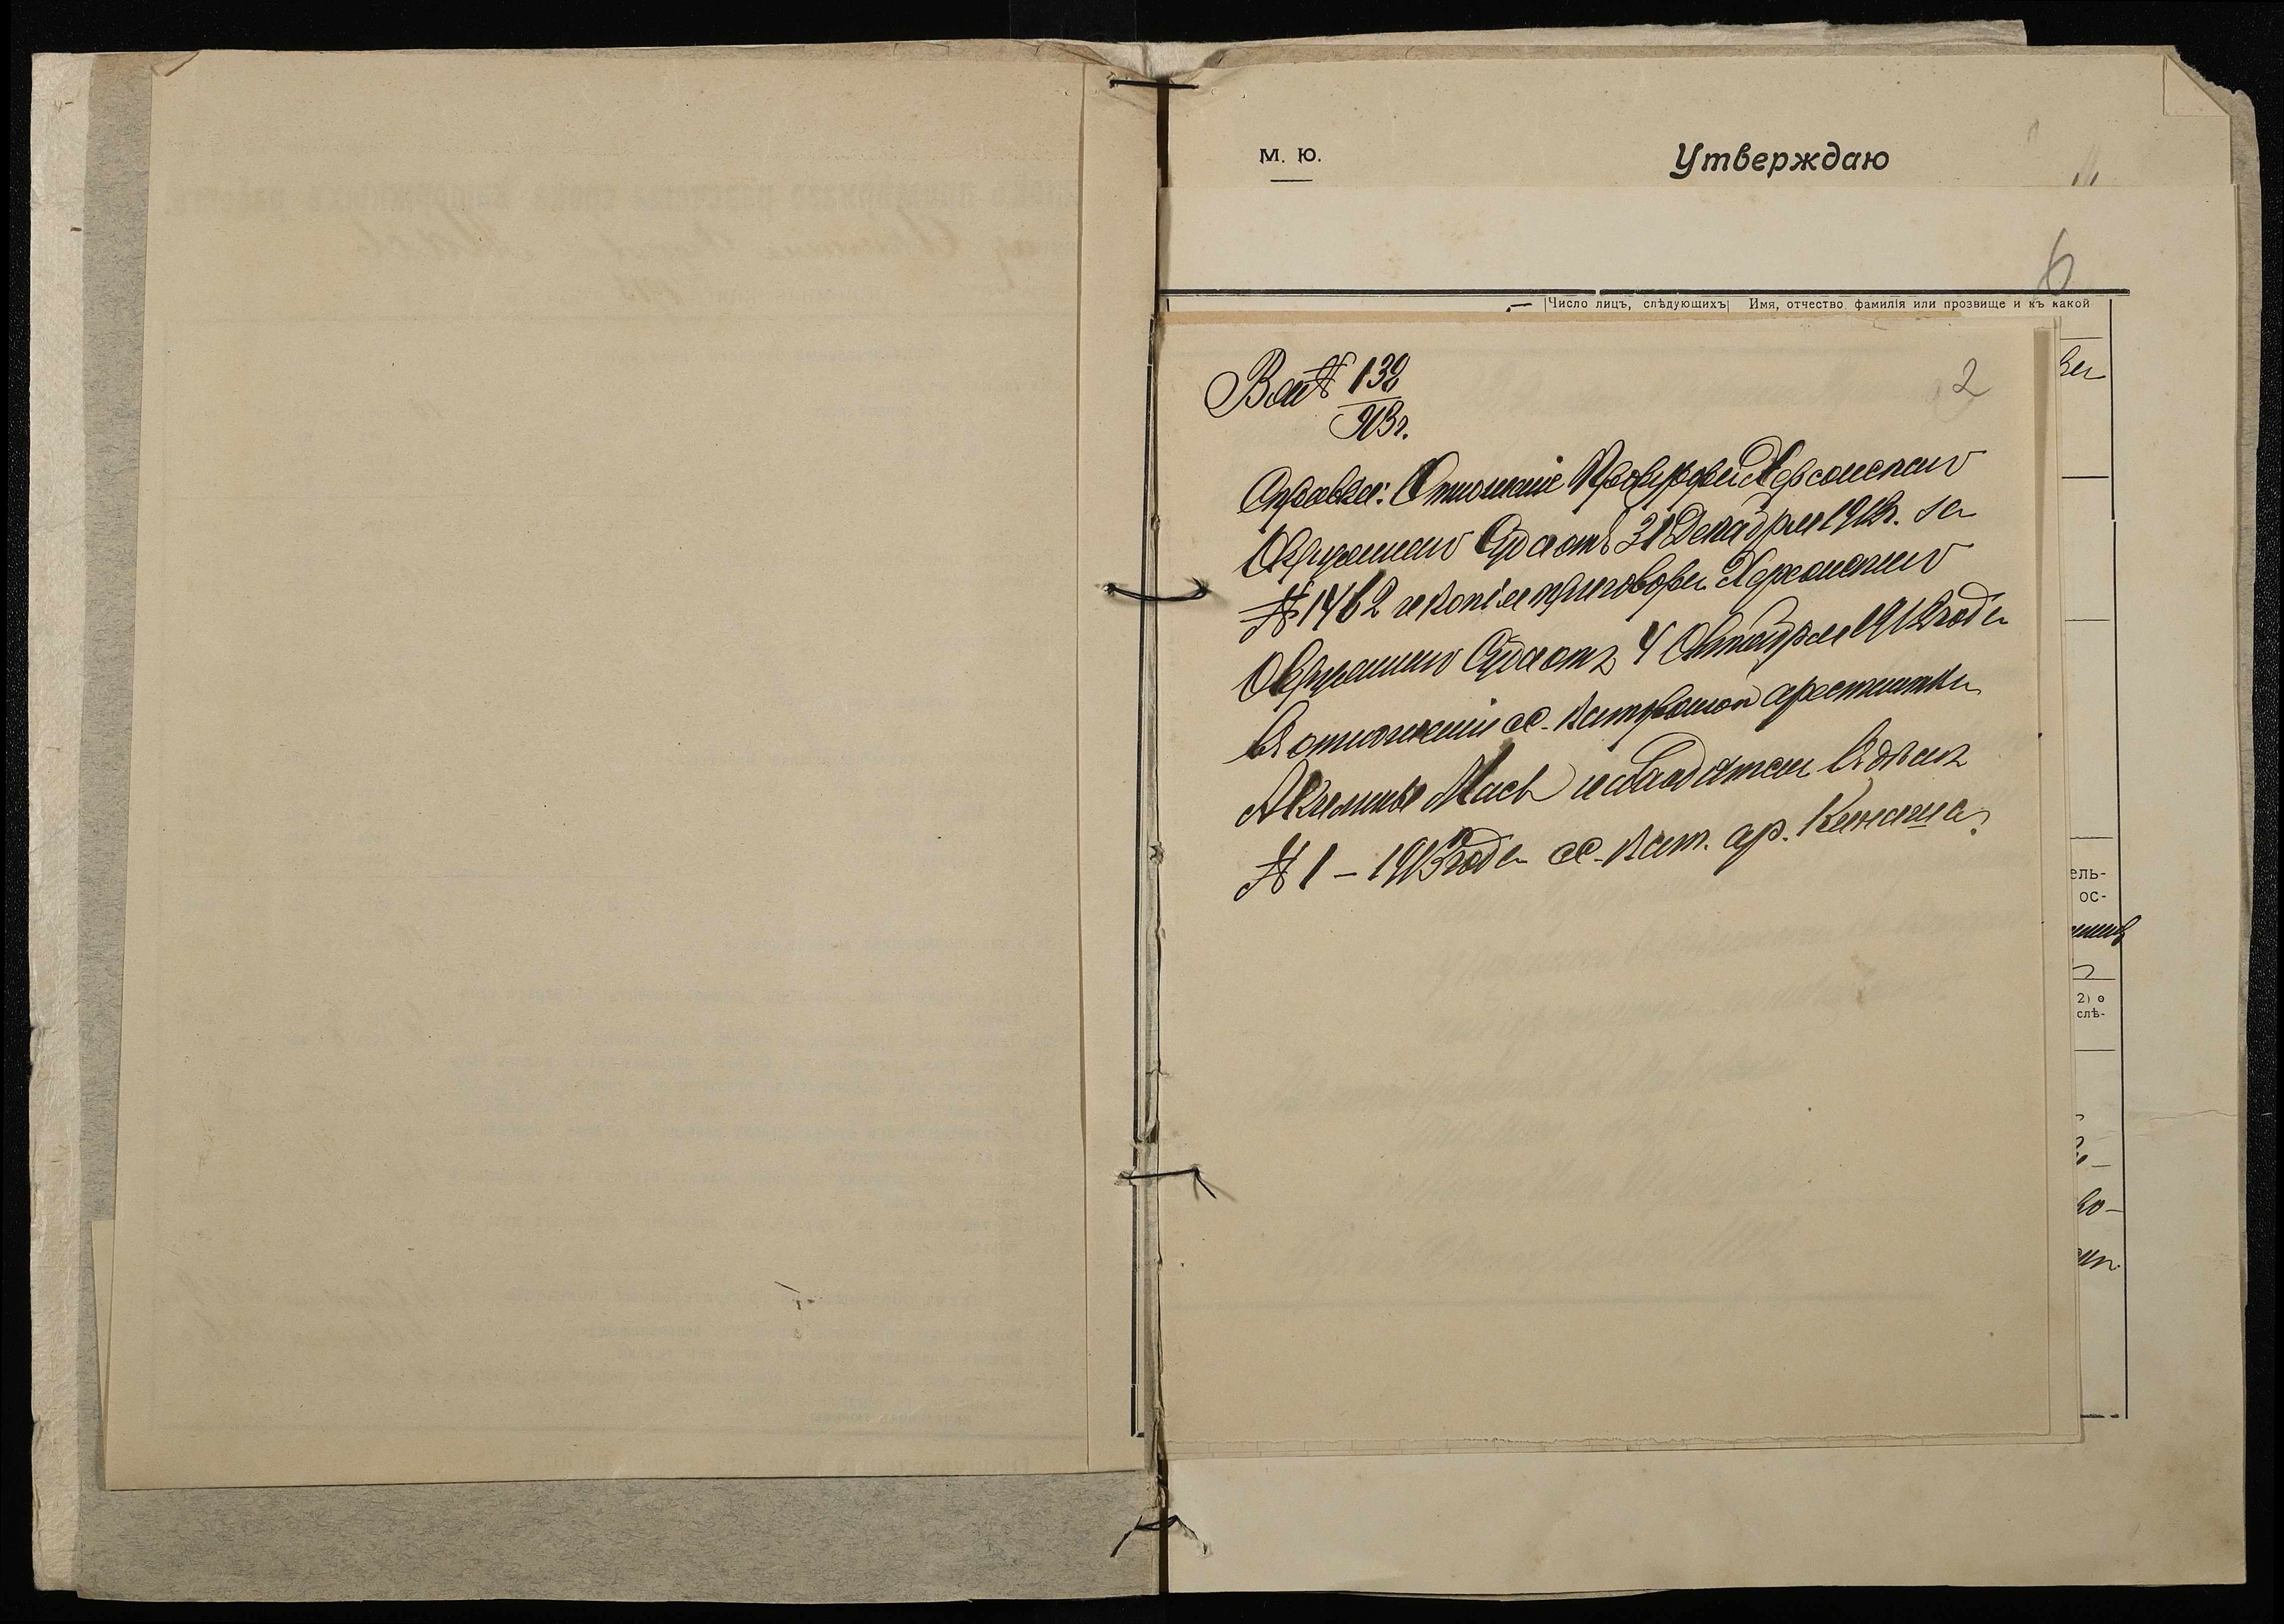 М. Ю.
Утверждаю
6
Число лицъ, слѣдующихъ Имя, отчество, фамилія или прозвище и къ какой
2
Вх № 132
913 г.
Справка: Отношеніе Прокурора Херсонскаго
Окружнаго Суда отъ 31 Декабря 1912 г. за
№ 1462 и копія приговора Херсонскаго
Окружнаго Суда отъ 4 Октября 1912 года
въ отношеніи сс.-каторжной арестантки
Акулины Масъ находятся въ дѣлѣ
№ 1 – 1913 года сс.-кат. ар.
ель-
ос-
2) о
слѣ-